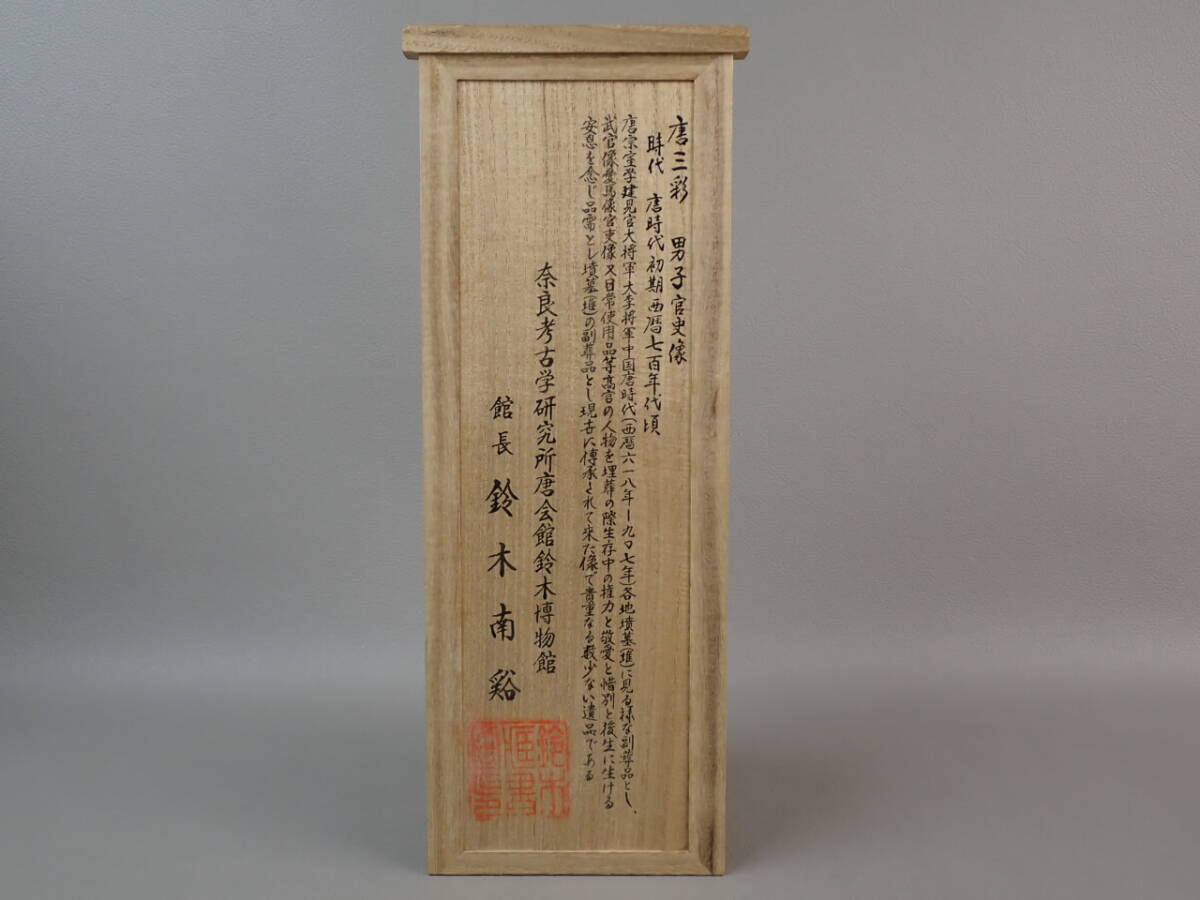 唐三彩 男子官吏像
時代 唐時代初期西暦七百年代頃
唐宗室学建見官大将軍大李将軍中国唐時代(西暦六一八年ー九〇七年)各地墳墓(璀)に見る様な副葬品とし、
武官像聖馬像官吏像又日常使用品等高官の人物を埋葬の際生存中の権力と敬愛と惜別と後生に生ける
安息を念じ品需とし墳墓(璀)の副葬品とし現古に傳承されて来た像で貴重なる数少ない遺品である
奈良考古学研究所唐会館鈴木博物館
館長 鈴木南谿